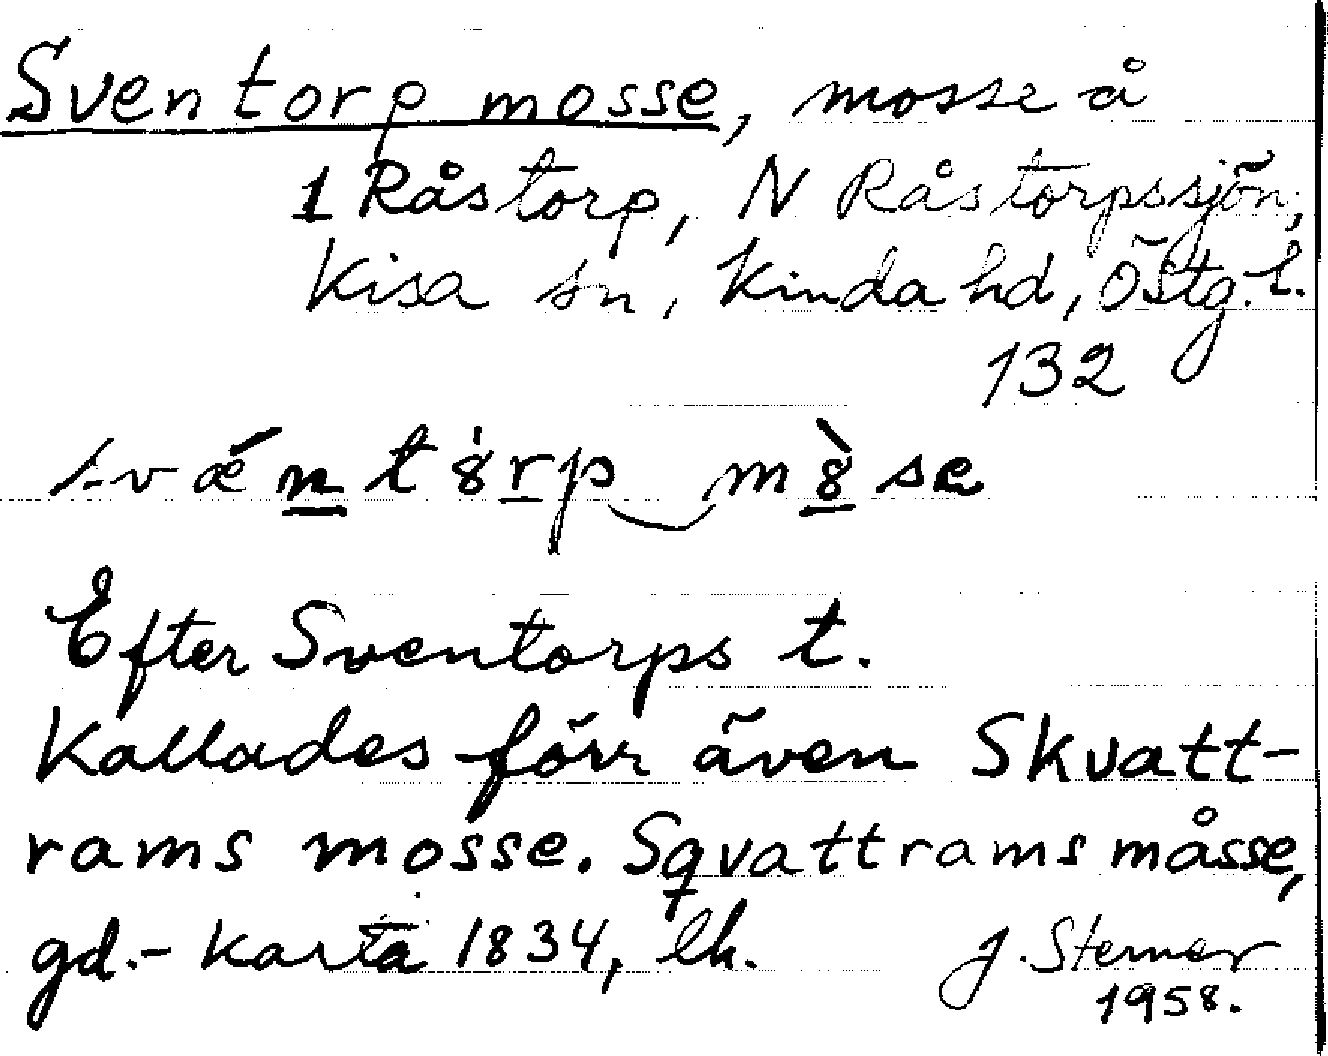 Sventorp mosse, mosse å
1 Råstorp, N Råstorpssjön,
Kisa sn, Kinda hd, Östg. l.
132
Efter Sventorps t.
Kallades förr även Skvatt-
rams mosse. Sqvattrams måsse,
gd.- karta 1834, lk.
J. Sterner
1958.